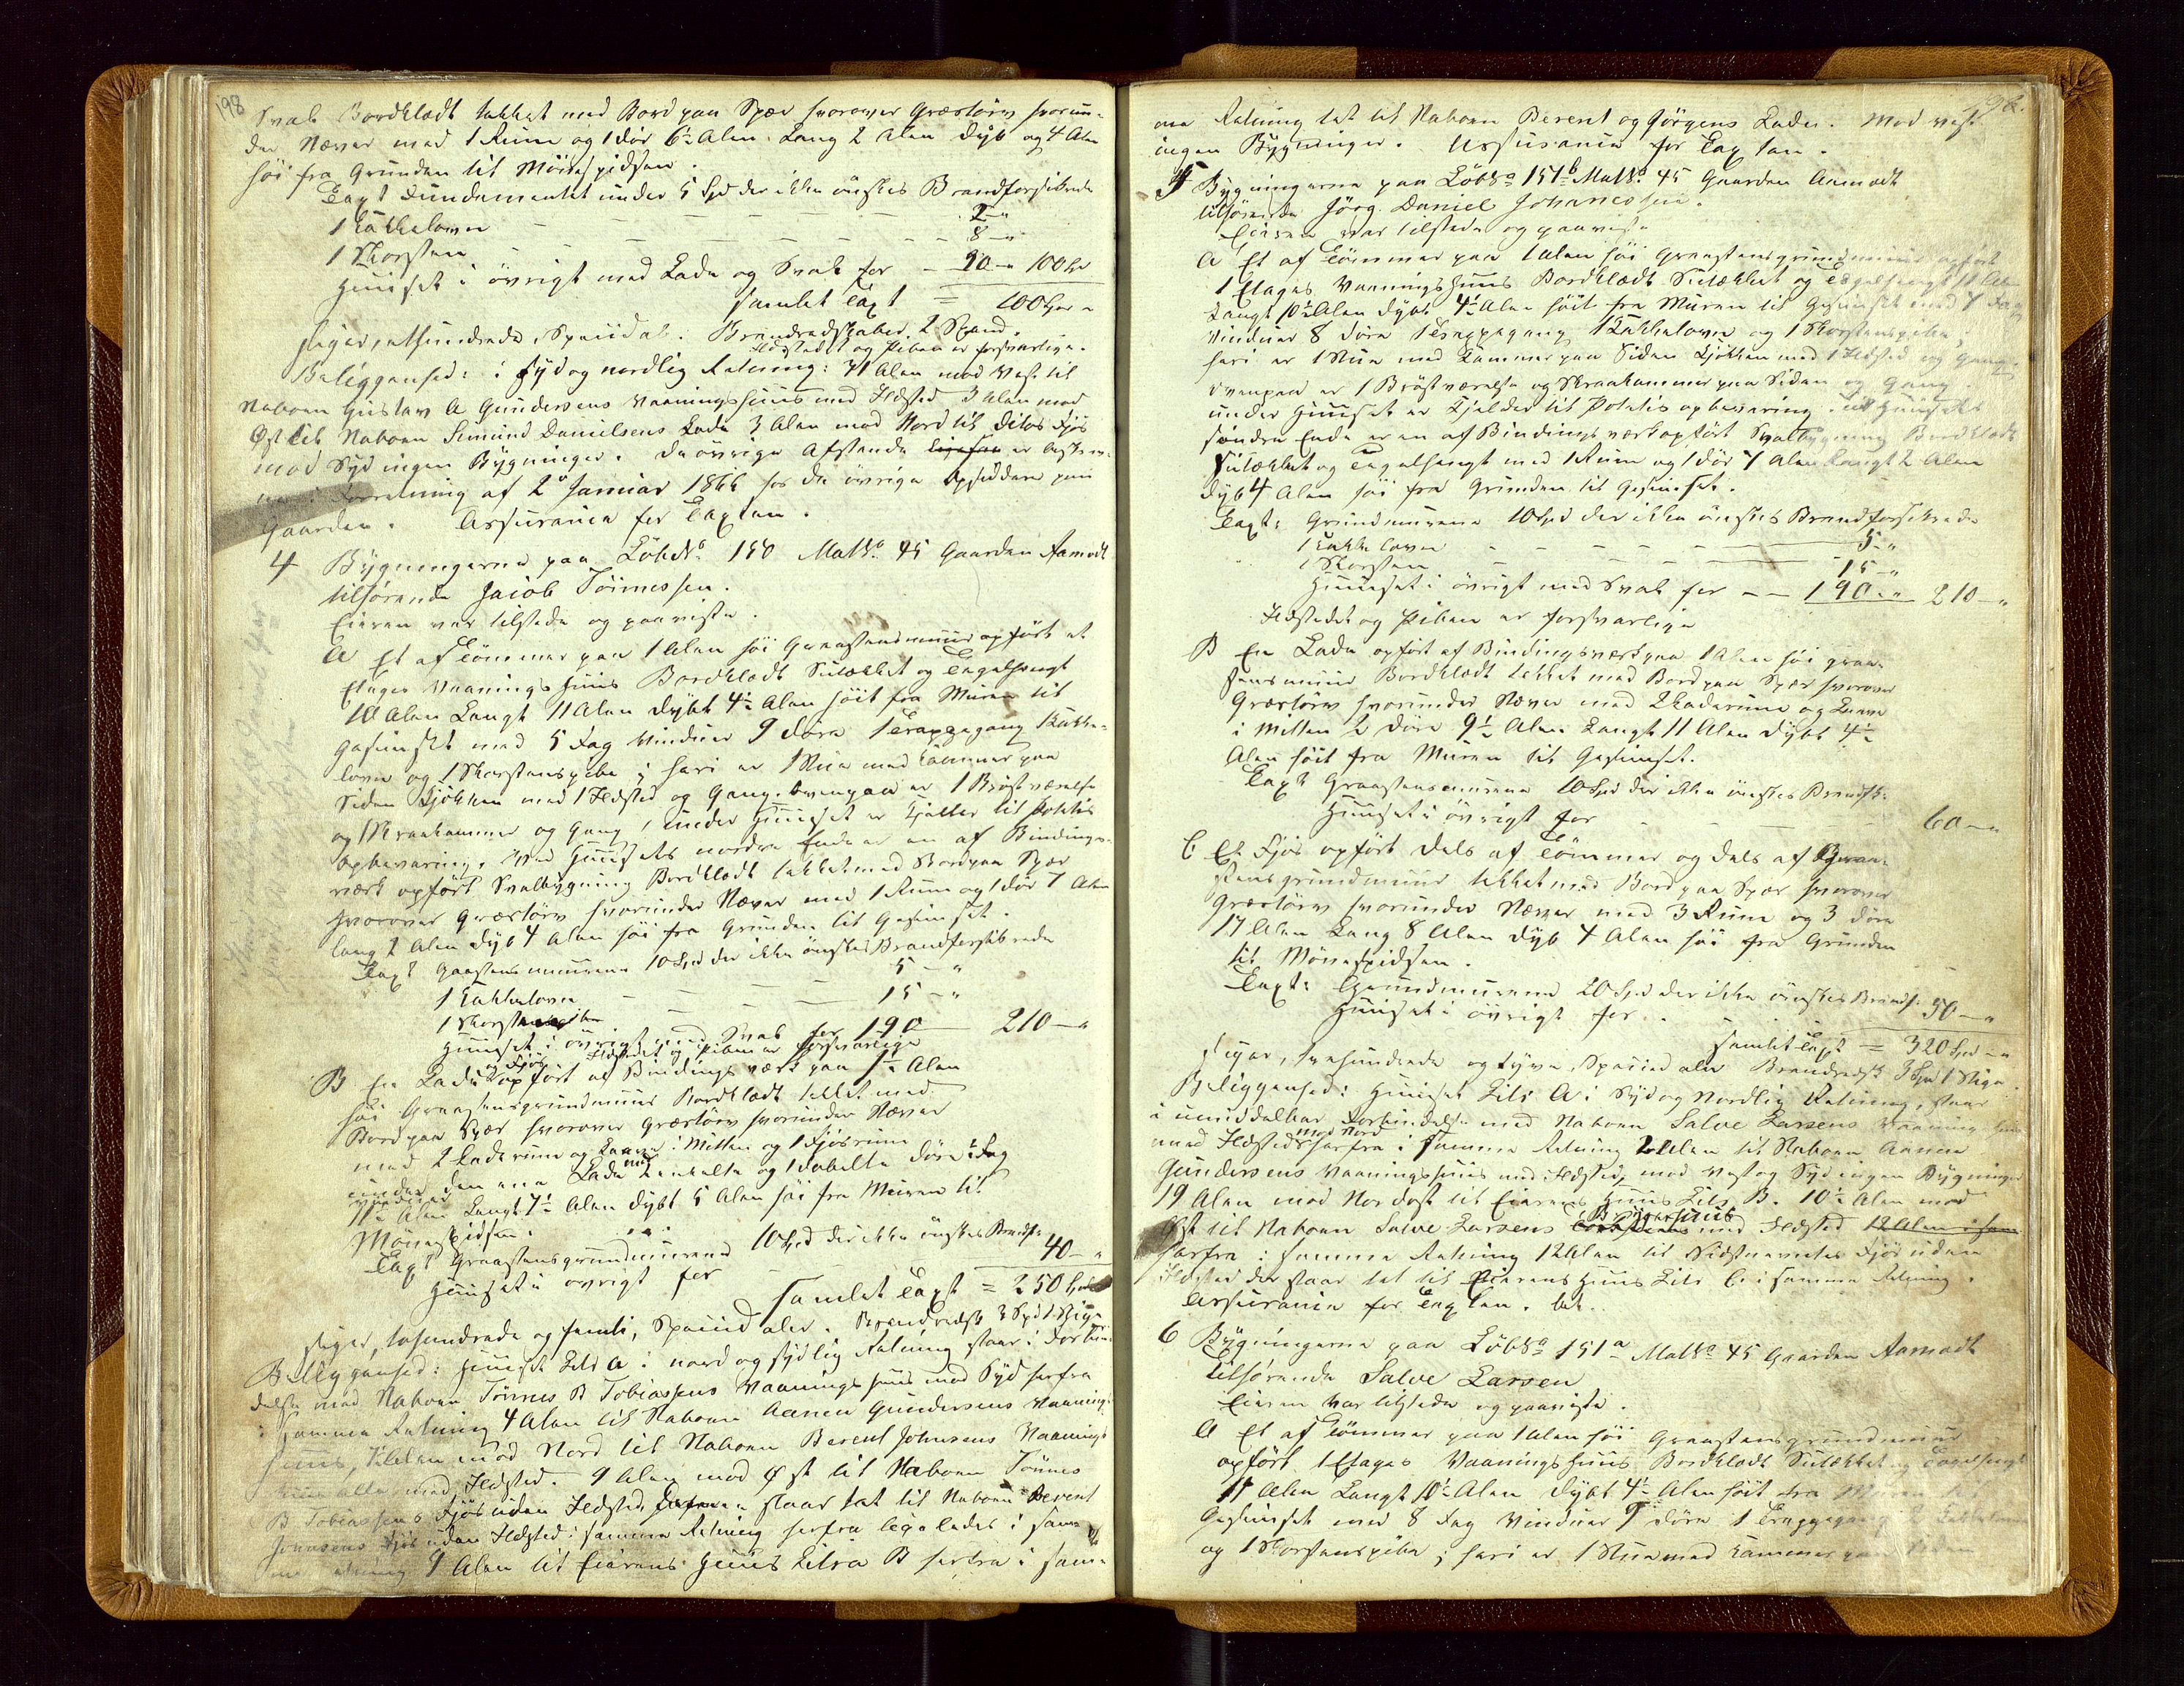 198
Sval Bordklædt tækket med Bord paa Spær hvorover Græstörv hvorun-
der Næver med 1 Rum og 1 dör 6½ Alen Lang 2 Alen dyb og 4 Alen
höi fra Grunden til Mönespidsen.
Taxt Fundamentet under 5 Spd der ikke önskes Brandforsikrede
1 Kakkelovn 2 "
1 Skorsten 8 "
Huuset i övrigt med Lade og Sval for 90 " 100 Spd
samlet Taxt = 100 Spd "
siger, et hundrede, Speciedal. Brandredskaber 2 Spand.
Ildstedet og Piben er forsvarlige.
Beliggenhed: i syd og nordlig Retning: 71 Alen mod Vest til
Naboen Gustav A Gundersens Vaaningshuus med Ildsted 3 Alen mod
Öst til Naboen Simund Danielsens Lade 3 Alen mod Nord til ditos Fjös
mod Syd ingen Bygninger. De övrige Afstande er beskre-
ne i Forretning af 2 Januar 1866 hos de övrige Opsiddere paa
Gaarden. Assurance for Taxten.
4 Bygningerne paa LöbNo 150 MatNo 45 Gaarden Aamodt
tilhörende Jacob Tönnessen.
Eieren var tilstede og paaviste.
A Et af Tömmer paa 1 Alen höi Graastensmuur opfört et
Etages Vaaningshuus Bordklædt Sutækket og Tegelhængt
10 Alen Langt 11 Alen dybt 4½ Alen höit fra Muren til
Gesimset med 5 Fag Vinduer 9 döre 1 Trappegang 1 Kakke-
lovn og 1 Skorstenspibe; heri er 1 Stue med Kammer paa
Siden Kjökken med 1 Ildsted og Gang. Ovenpaa er 1 Bröstværelse
og 1 Skraakammer og Gang, under Huuset er Kjelder til Potetis
opbevaring. Ved Huusets nordre Ende er en af Bindings-
værk opfört Svalbygning Bordklædt tækket med Bord paa Spær
hvorover Græstörv hvorunder Næver med 1 Rum og 1 dör 7 Alen
lang 2 Alen dyb 4 Alen höi fra Grunden til Gesimset.
Taxt Gaastensmuurene 10 Spd der ikke önskes Brandforsikrede
1 Kakkelovn 5 "
1 Skorsten 15 "
Huuset i övrigt med Sval for 190 210 "
Ildstedet og Piben er forsvarlige
B En Lade og Fjös opfört af Bindingsværk paa 1½ Alen
höi Graastensgrundmuur Bordklædt tækket med
Bord paa Spær hvorover Græstörv hvorunder Næver
med 2 Laderum og Laave i Mitten og 1 Fjösrum
under den ene Lade med 2 enkelte og 1 dobelte döre 2 Fag
vinduer
11½ Alen Langt 7½ Alen dybt 5 Alen höi fra Muren til
Mönespidsen.
Taxt Graastensgrundmurene 10 Spd der ikke önskes Brandf:
Huuset i övrigt for 40 "
samlet Taxt = 250 Spd
siger, tohundrede og femti, Speciedaler. Brandredsk 3 Spd 1 Stige
Beliggenhed: Huuset Litr A i nord og sydlig Retning staar i Forbin-
delse med Naboen Tönnes B Tobiassens Vaaningshuus mod Syd herfra
i samme Retning 4 Alen til Naboen Aanen Gundersens Vaanings
huus, Alen mod Nord til Naboen Berent Johnsens Vaanings
huus alle med Ildsted. 9 Alen mod Öst til Naboen Tönnes
B Tobiassens Fjös uden Ildsted staar tæt til Naboen Berent
Johnsens Fjös uden Ildsted i samme Retning herfra ligeledes i sam-
me Retning 9 Alen til Eierens Huus Litra B herfra i sam-
me Retning tæt til Naboen Berent og Jörgens Lader. Mod vest
ingen Bygninger. Assurance for Taxten.
5 Bygningerne paa LöbNo 151b MatNo 45 Gaarden Aamodt
tilhörende Jörg. Daniel Johanessen.
Eieren var tilstede og paaviste
A Et af Tömmer paa 1 Alen höi Graastensgrundmuur opfört
1 Etages Vaaningshuus Bordklædt Sutækket og Tegelhængt 11 Alen
Langt 10½ Alen dybt 4½ Alen höit fra Muren til Gesimset med 7 Fag
Vinduer 8 döre 1 Trappegang 1 Kakkelovn og 1 Skorstenspibe;
heri er 1 Stue med Kammer paa Siden Kjökken med 1 Ildsted og Gang
ovenpaa er 1 Bröstværelse og Skraakammer paa Siden og Gang.
under Huuset er Kjelder til Potetis opbevaring. Til Huusets
söndre Ende er en af Bindingsværk opfört Svalbygning Bordklædt
Sutækket og Tegelhængt med 1 Rum og 1 dör 7 Alen Langt 2 Alen
dyb 4 Alen höi fra Grunden til Gesimset.
Taxt: Grundmurene 10 Spd der ikke önskes Brandforsikrede
1 Kakkelovn 5 "
1 Skorsten 15 "
Huuset i övrigt med Sval for 190 " 210 "
Ildstedet og Piben er forsvarlige
B En Lade opfört af Bindingsværk paa 1 Alen höi graa-
stensmuur Bordklædt tækket med Bord paa Spær hvorover
Græstörv hvorunder Næver med 2 Laderum og Laave
i Mitten 2 döre 9½ Alen Langt 11 Alen dybt 4½
Alen höit fra Muren til Gesimset.
Taxt Graastensmurene 10 Spd der ikke önskes Brandfk:
Huuset i övrigt for 60 "
C Et Fjös opfört dels af Tömmer og dels af Graa-
stensgrundmuur tækket med Bord paa Spær hvorover
Græstörv hvorunder Næver med 3 Rum og 3 döre
17 Alen Lang 8 Alen dyb 4 Alen höi fra Grunden
til Mönespidsen.
Taxt: Grundmurene 20 Spd der ikke önskes Brandf:
Huuset i övrigt for 50 "
samlet Taxt = 320 Spd "
siger, trehundrede og tyve, Speciedaler Brandredsk 3 Spd 1 Stige.
Beliggenhed: Huuset Litr A i Syd og Nordlig Retning, staar
i umiddelbar Forbindelse med Naboen Salve Larsens Vaanings
med Ildsted mod Nord herfra i samme Retning 2 Alen til Naboen Aanen
Gundersens Vaaningshuus med Ildsted, mod Vest og Syd ingen Bygninger
19 Alen mod Nordost til Eierens Huus Litr B. 10½ Alen mod
Öst til Naboen Salve Larsens Bryggehuus med Ildsted 12 Alen i sam
herfra i samme Retning 12 Alen til Sidstnævntes Fjös uden
Ildsted der staar tæt til Eierens Huus Litr C i samme Retning.
Assurance for Taxten.
6 Bygningerne paa LöbNo 151a MatNo 45 Gaarden Aamodt
tilhörende Salve Larsen
Eieren var tilstede og paaviste.
A Et af Tömmer paa 1 Alen höi Graastensgrundmuur
opfört 1 Etages Vaaningshuus Bordklædt Sutækket og Tegelhengt
11 Alen Langt 10½ Alen dybt 4½ Alen höit fra Muren til
Gesimset med 8 Fag Vinduer 9 döre 1 Trappegang 2 Kakkelovne
og 1 Skorstenspibe; heri er 1 Stue med Kammer paa Siden